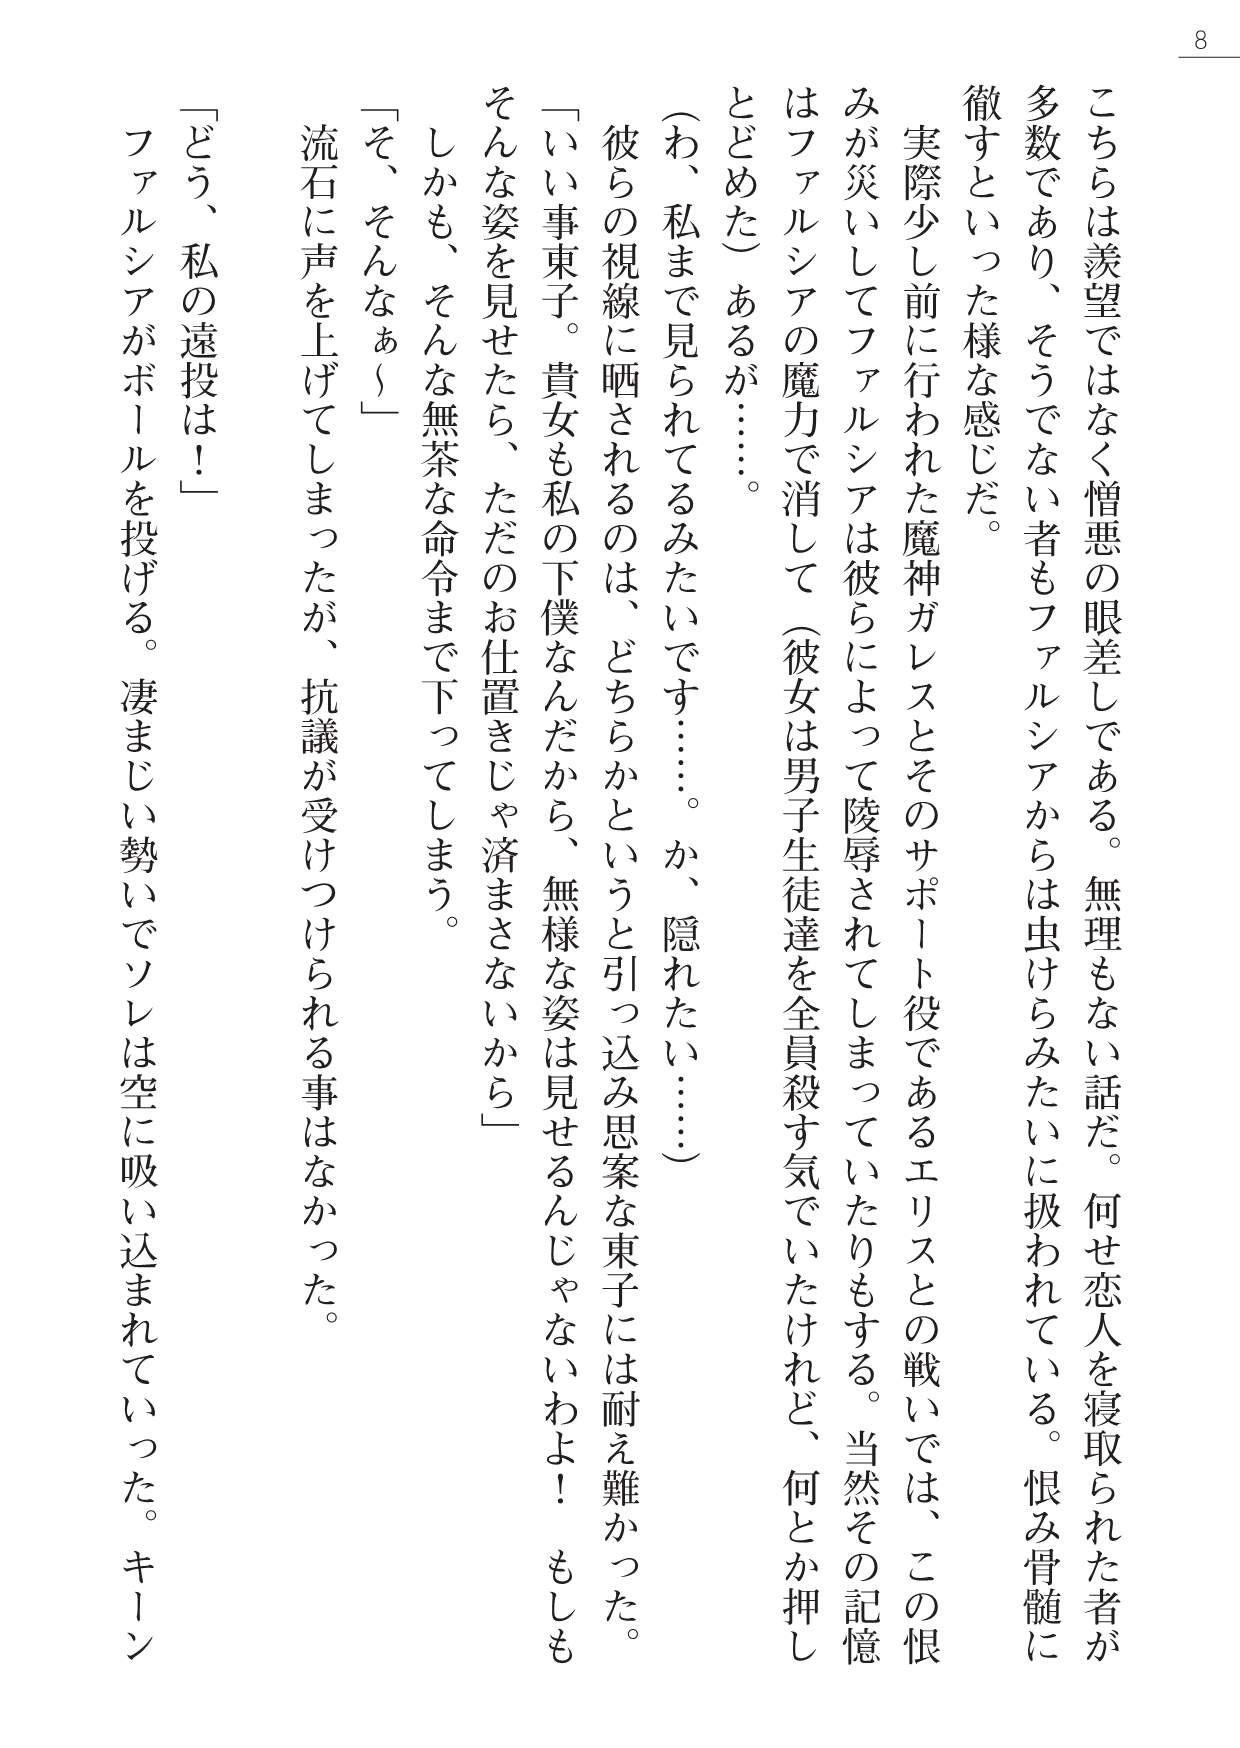 8
こちらは羨望ではなく憎悪の眼差しである。無理もない話だ。何せ恋人を寝取られた者が
多数であり、そうでない者もファルシアからは虫けらみたいに扱われている。恨み骨髄に
徹すといった様な感じだ。
　実際少し前に行われた魔神ガレスとそのサポート役であるエリスとの戦いでは、この恨
みが災いしてファルシアは彼らによって陵辱されてしまっていたりもする。当然その記憶
はファルシアの魔力で消して（彼女は男子生徒達を全員殺す気でいたけれど、何とか押し
とどめた）あるが……。
（わ、私まで見られてるみたいです……。か、隠れたい……）
　彼らの視線に晒されるのは、どちらかというと引っ込み思案な東子には耐え難かった。
「いい事東子。貴女も私の下僕なんだから、無様な姿は見せるんじゃないわよ！　もしも
そんな姿を見せたら、ただのお仕置きじゃ済まさないから」
　しかも、そんな無茶な命令まで下ってしまう。
「そ、そんなぁ～」
　流石に声を上げてしまったが、抗議が受けつけられる事はなかった。
「どう、私の遠投は！」
　ファルシアがボールを投げる。凄まじい勢いでソレは空に吸い込まれていった。キーン